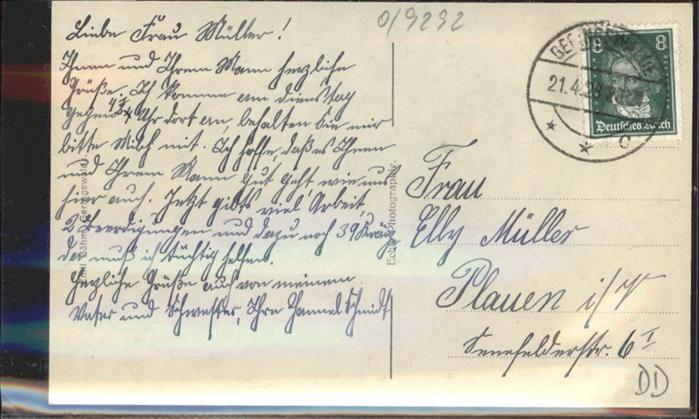 0/9292
Liebe Frau Müller!
Ihnen und Ihrem Mann herzliche
Grüße. Ich komme am Dienstag
gegen Uhr dort an, behalten Sie mir
bitte Milch mit. Ich hoffe, daß es Ihnen
und Ihrem Mann gut geht, wie uns
hier auch. Jetzt gibts viel Arbeit,
2 Beerdigungen und dazu noch 39 Kränze
da muß ich tüchtig helfen.
Herzliche Grüße auch von meinem
Vater und Schwester, Ihre Schmidt
21.4.
8 8
Deutsches Reich
Frau
Elly Müller
Plauen i/V
Senefelderstr. 6 I
DD